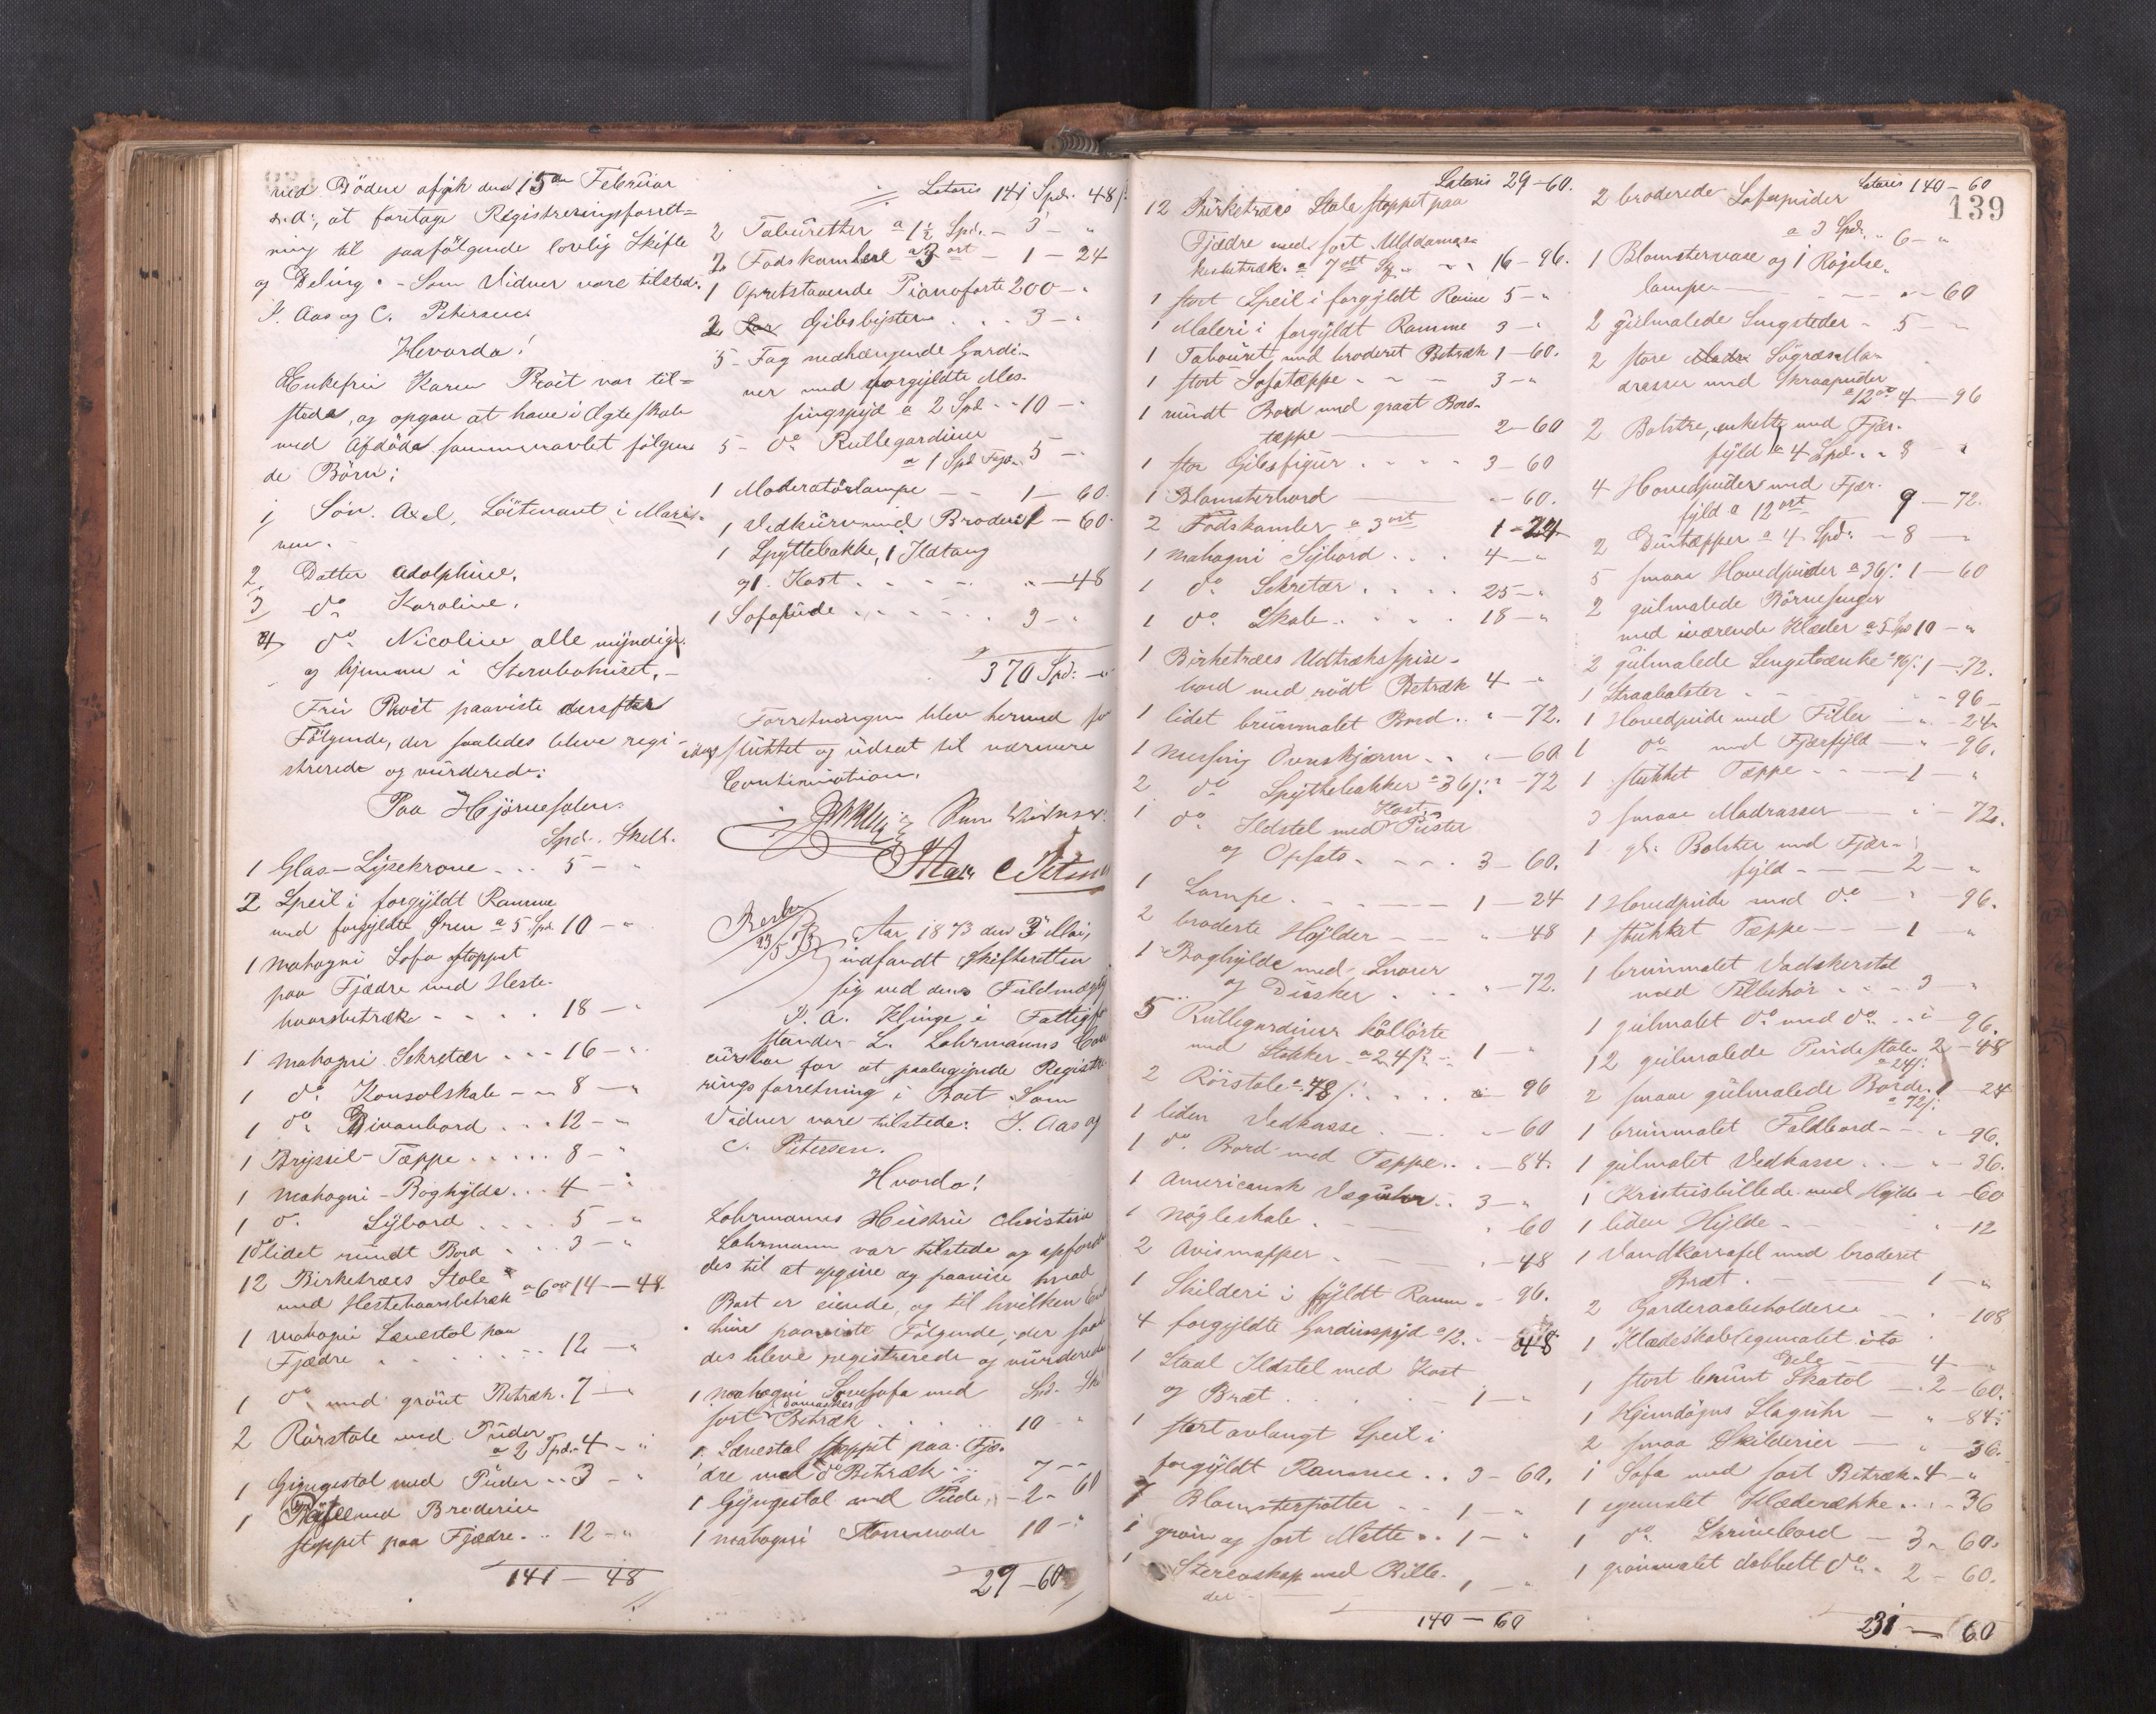 ved Döden afgik den 15de Februar
d. A., at foretage Registreringsforret-
ning til paafölgende lovlig Skifte
og Deling. - Som Vidner vare tilstede:
J. Aas og C. Petersen
Hvorda!
Enkefru Karen Proit var til-
stede, og opgav at have i Ægteskab
med Afdöde sammenavlet fölgen-
de Börn:
1, Sön. Axel, Löitenant i Mari-
nen.
2, Datter Adolphine,
3, do Karoline,
4, do Nicoline alle myndige
og hjemme i Sterbohuset. -
Fru Proit paaviste derefter
Fölgende, der saaledes bleve regi-
strerede og vurderede:
Paa Hjörnesalen.
Spd. Skill.
1 Glas-Lysekrone - . . 5 - "
2 Speil i forgyldt Ramme
med forgyldte Ören a 5 Spd. 10 - "
1 mahogni Sofa stoppet
paa Fjædre med Heste-
haarsbetræk - . . . 18 - "
1 mahogni Sekretær . . . 16 - "
1 do Konsolskab - - 8 - "
1 do Divanbord . . . 12 - "
1 Bryssel-Tæppe . . . . . 8 - "
1 mahogni-Boghylde . . . 4 - "
1 do Sybord . . . . 5 - "
1 do lidet rundt Bord . . . 3 - "
12 Birketræes Stole
med Hestehaarsbetræk a 6 ort 14 - 48
1 mahogni Lænestol paa
Fjædre . . . . . . . 12 - "
1 do med grönt Betræk . 7 - "
2 Rörstole med Puder
a 2 Spd. 4 - "
1 Gyngestol med Puder . . 3 - "
1 Puf med Broderie
stoppet paa Fjædre . . . 12 - "
141 - 48

Lateris 141 Spd. 48 s:
2 Tabüretter a 1½ Spd. - 3 - "
2 Fodskamler a 3 ort - 1 - 24
1 Opretstaaende Pianoforte 200 - "
2 Gibsbyster . . . 3 - "
5 Fag nedhængende Gardi-
ner med forgyldte Mes-
singspyd a 2 Spd. - 10 - "
5 - do Rullegardiner
a 1 Spd Fag. 5 - "
1 Moderatörlampe - - 1 - 60.
1 Vedkurv med Broderi 1 - 60.
1 Spyttebakke, 1 Ildtang
og 1 Kost . . . . . " - 48
1 Sofapude . . . . . . 3 - "
370 Spd: - "
Forretningen blev hermed for
idag sluttet og udsat til nærmere
Continuation.
C. Petersen
23/5 73
Aar 1873 den 3 Mai,
indfandt Skifteretten
sig ved dens Fuldmægtig
P. A. Klinge i Fattigfor-
stander L. Lohrmanns Con-
cursbo for at paabegynde Registre-
ringsforretning i Boet. Som
Vidner vare tilstede: J. Aas og
C. Petersen.
Hvorda!
Lohrmanns Hustru Christine
Lohrmann var tilstede og opfordre-
des til at opgive og paavise hvad
Boet er eiende, og til hvilken
paaviste Fölgende, der saale-
des bleve registrerede og vurderede
1 mahogni Sovesofa med Spd. Sk
sort damaskes Betræk . . . . . 10 - "
1 Lænestol stoppet paa Fjæ-
dre med do Betræk . . 7 - "
1 Gyngestol med Pude . - 2 - 60
1 mahogni Kommode 10 - "
29 - 60

Lateris 29 - 60.
12 Birketræes Stole stoppet paa
Fjædre med sort Ulddamas-
kesbetræk a 7 ort - - 16 - 96.
1 stort Speil i forgyldt Ramme 5 - "
1 Maleri i forgyldt Ramme 3 - "
1 Tabouret med broderet Betræk 1 - 60.
1 stort Sofatæppe - - - 3 - "
1 rundt Bord med graat Bord-
tæppe 2 - 60
1 stor Gibsfigur . . . . 3 - 60
1 Blomsterbord " - 60.
2 Fodskamler a 3 ort 1 - 24
1 mahogni Sybord . . . 4 - "
1 do Sekretær . . . . 25 - "
1 do Skab . . . . . 18 - "
1 Birketræes Udtræksspise-
bord med rödt Betræk 4 - "
1 lidet brunmalet Bord . . " - 72.
1 messing Ovnskjærm . . " - 60
2 do Spyttebakker a 36 s: " - 72
1 do Ildstel med Kost, Puster
og Opsats . . . . 3 - 60.
1 Lampe . . . . . . 1 - 24
2 broderte Hylder - - " - 48
1 Boghylde med Snorer
og Dusker . . . . " - 72.
5 Rullegardiner kollörte
med Stokker a 24 s: - 1 - "
2 Rörstole a 48 s: . . . . " 96
1 liden Vedkasse . . . " - 60
1 do. Bord med Tæppe . . " - 84.
1 Americansk Væguhr . . 3 - "
1 Nögleskab . " - 60
2 Avismapper . " - 48
1 Skilderi i fgyldt Ramme " - 96.
4 forgyldte Gardinspyd a 12. " - 48
1 Staal Ildstel med Kost
og Bræt . . . . . - 1 - "
1 stort avlangt Speil i
forgyldt Ramme . . 3 - 60.
7 Blomsterpotter . . 1 - "
1 grön og sort Matte . . 1 - "
1 Stereoskop med Bille-
der 1 - "
140 - 60

Lateris 140 - 60
139
2 broderede Sofapuder
a 3 Spd. . 6 - "
1 Blomstervase og 1 Rögelse-
lampe " - 60
2 gulmalede Sengsteder - 5 - "
2 store Sögræs Ma-
drasser med Skraapuder
a 12 ort 4 - 96
2 Bolstre, enkelte med Fjær-
fyld a 4 Spd. . 8 - "
4 Hovedpuder med Fjær-
fyld a 12 ort 9 - 72.
2 Duntæpper a 4 Spd. - 8 - "
5 smaae Hovedpuder a 36 s: 1 - 60
2 gulmalede Börnesenger
med iværende Klæder a 5 Spd 10 - "
2 gulmalede Sengebænke a 96 s: 1 - 72.
1 Straabolster - " - 96 -
1 Hovedpude med Filler - " - 24
1 do med Fjærfyld - " - 96.
1 stukket Tæppe - - - 1 - "
3 smaae Madrasser - " - 72.
1 gl. Bolster med Fjær-
fyld - - - 2 - "
1 Hovedpude med do - " - 96.
1 stukket Tæppe - - - 1 - "
1 brunmalet Vadskerstol
med Tilbehör . . . 3 - "
1 gulmalet do med do . . " 96.
12 gulmalede Pindestole 2 - 48
a 24 s:
2 smaae gulmalede Borde 1 - 24
a 72 s:
1 brunmalet Foldbord - - " - 96.
1 gulmalet Vedkasse . . - " - 36.
1 Kristusbillede med Hylde " - 60
1 liden Hylde - " - 12
1 Vandkarraffel med broderet
Bræt . 1 - "
2 Garderobeholdere " 108
1 Klædeskab egemalet i to
Dele - 4 - "
1 stort brunt Skatol - . 2 - 60.
1 Hjemdögns Slaguhr - " - 84.
2 smaa Skilderier - " - 36.
1 Sofa med sort Betræk . 4 - "
1 egemalet Klæderække . . " - 36
1 do Skrivebord - 3 - 60.
1 grönmalet dobbelt do . 2 - 60.
231 - 60